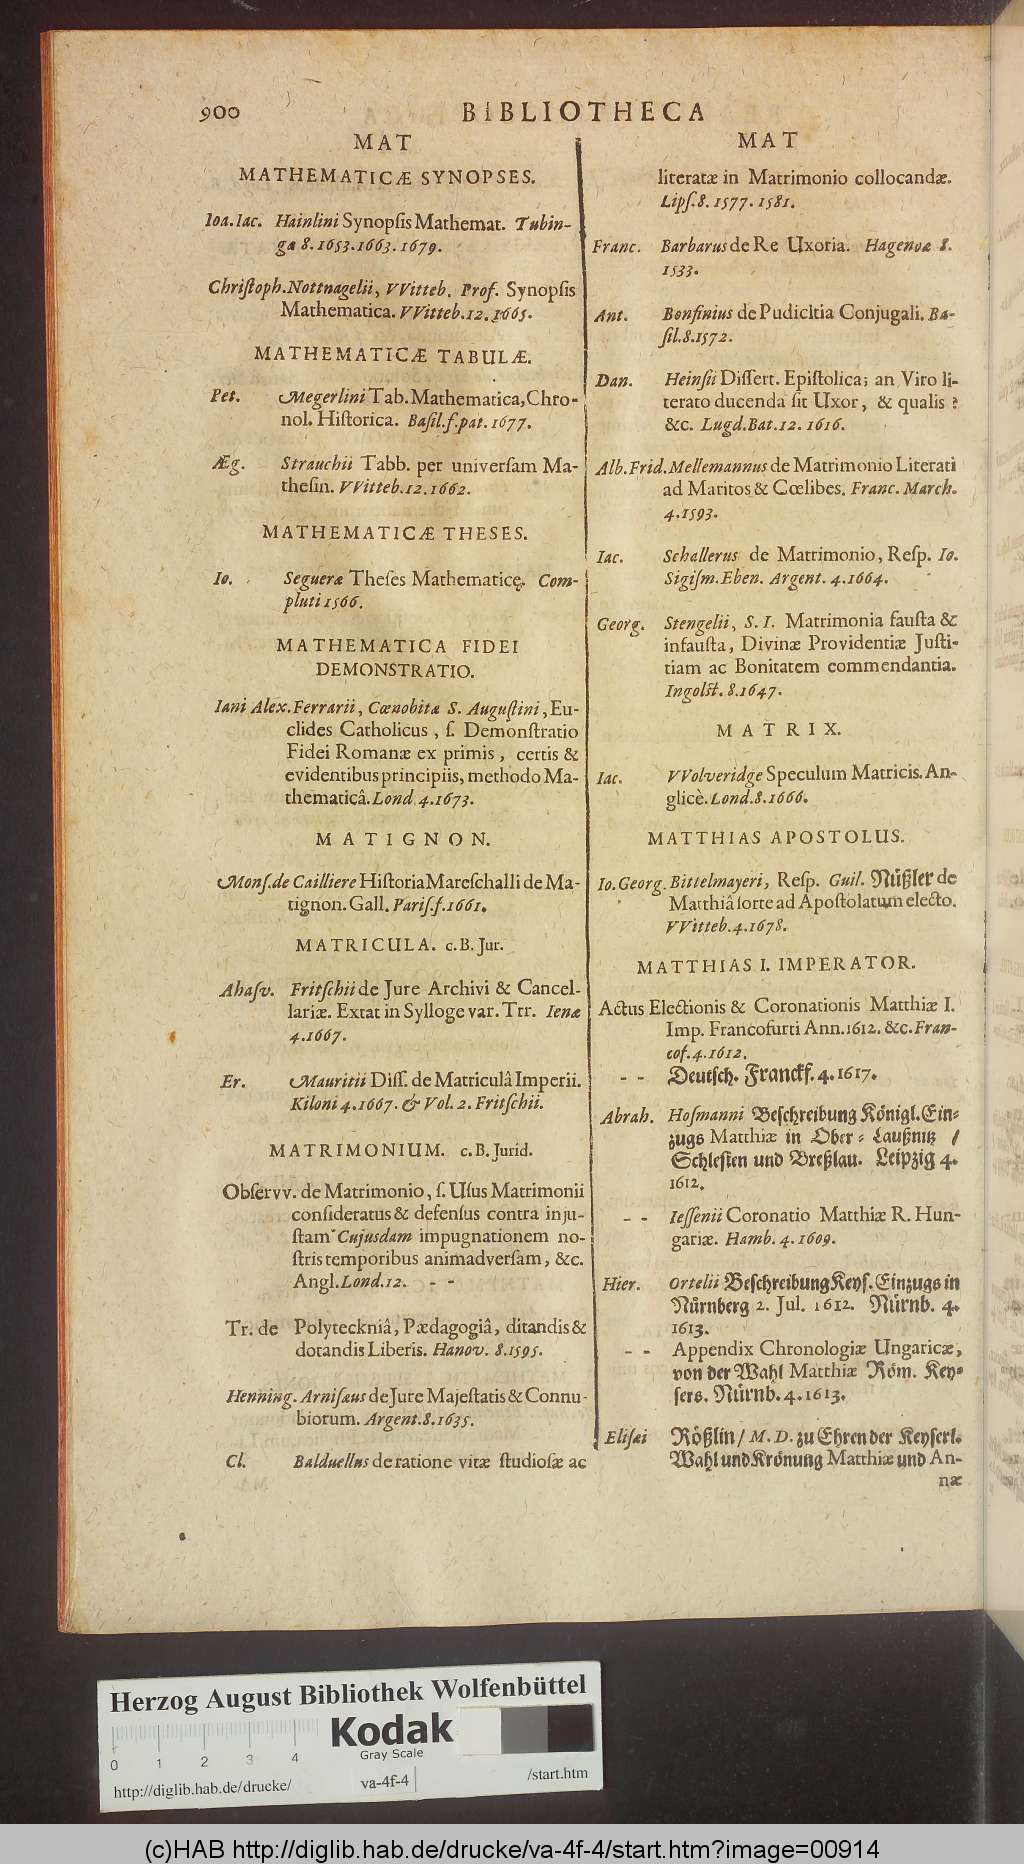 900
BIBLIOTHECA
MAT
MATHEMATICÆ SYNOPSES.
Ioa. Iac. Hainlini Synopſis Mathemat. Tubin-
gæ 8. 1653. 1663. 1679.
Chriſtoph. Nottnagelii, VVitteb. Prof. Synopſis
Mathematica. VVitteb. 12. 1665.
MATHEMATICÆ TABULÆ.
Pet. Megerlini Tab. Mathematica, Chro-
nol. Hiſtorica. Baſil. f. pat. 1677.
Æg. Strauchii Tabb. per univerſam Ma-
theſin. VVitteb. 12. 1662.
MATHEMATICÆ THESES.
Io. Segueræ Theſes Mathematicę. Com-
pluti 1566.
MATHEMATICA FIDEI
DEMONSTRATIO.
Iani Alex. Ferrarii, Cœnobitæ S. Auguſtini, Eu-
clides Catholicus, ſ. Demonſtratio
Fidei Romanæ ex primis, certis &
evidentibus principiis, methodo Ma-
thematicâ. Lond 4. 1673.
MATIGNON.
Monſ. de Cailliere Hiſtoria Mareſchalli de Ma-
tignon. Gall. Pariſ. f. 1661.
MATRICULA. c. B. Jur.
Ahaſv. Fritſchii de Jure Archivi & Cancel-
lariæ. Extat in Sylloge var. Trr. Ienæ
4. 1667.
Er. Mauritii Diſſ. de Matriculâ Imperii.
Kiloni 4. 1667. & Vol. 2. Fritſchii.
MATRIMONIUM. c. B. Jurid.
Obſervv. de Matrimonio, ſ. Uſus Matrimonii
conſideratus & defenſus contra inju-
ſtam Cujusdam impugnationem no-
ſtris temporibus animadverſam, &c.
Angl. Lond. 12. - -
Tr. de Polytecknîâ, Pædagogiâ, ditandis &
dotandis Liberis. Hanov. 8. 1595.
Henning. Arniſæus de Jure Majeſtatis & Connu-
biorum. Argent. 8. 1635.
Cl. Balduellus de ratione vitæ ſtudioſæ ac
MAT
literatæ in Matrimonio collocandæ.
Lipſ. 8. 1577. 1581.
Franc. Barbarus de Re Uxoria. Hagenoæ 8.
1533.
Ant. Bonfinius de PudicItia Conjugali. Ba-
ſil. 8. 1572.
Dan. Heinſii Diſſert. Epiſtolica; an Viro li-
terato ducenda ſit Uxor, & qualis?
&c. Lugd. Bat. 12. 1616.
Alb. Frid. Mellemannus de Matrimonio Literati
ad Maritos & Cœlibes. Franc. March.
4. 1593.
Iac. Schallerus de Matrimonio, Reſp. Io.
Sigiſm. Eben. Argent. 4. 1664.
Georg. Stengelii, S. I. Matrimonia fauſta &
infauſta, Divinæ Providentiæ Juſti-
tiam ac Bonitatem commendantia.
Ingolſt. 8. 1647.
MATRIX.
Iac. VVolveridge Speculum Matricis. An-
glicè. Lond. 8. 1666.
MATTHIAS APOSTOLUS.
Io. Georg. Bittelmayeri, Reſp. Guil. Nüßler de
Matthiâ ſorte ad Apoſtolatum electo.
VVitteb. 4. 1678.
MATTHIAS I. IMPERATOR.
Actus Electionis & Coronationis Matthiæ I.
Imp. Francofurti Ann. 1612. &c. Fran-
cof. 4. 1612.
- - Deutſch. Franckf. 4. 1617.
Abrah. Hoſmanni Beſchreibung Königl. Ein-
zugs Matthiæ in Ober- Laußnitz /
Schleſien und Breßlau. Leipzig 4.
1612.
- - Ieſſenii Coronatio Matthiæ R. Hun-
gariæ. Hamb. 4. 1609.
Hier. Ortelii Beſchreibung Keyſ. Einzugs in
Nürnberg 2. Jul. 1612. Nürnb. 4.
1613.
- - Appendix Chronologiæ Ungaricæ,
von der Wahl Matthiæ Röm. Key-
ſers. Nürnb. 4. 1613.
Eliſæi Rößlin / M. D. zu Ehren der Keyſerl.
Wahl und Krönung Matthiæ und An-
næ
Herzog August Bibliothek Wolfenbüttel
Kodak
Gray Scale
0 1 2 3 4
http://diglib.hab.de/drucke/ va-4f-4 /start.htm
(c)HAB http://diglib.hab.de/drucke/va-4f-4/start.htm?image=00914